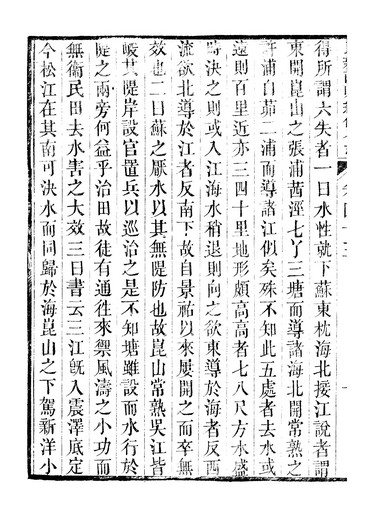 得所謂六失者一曰水性就下蘇東枕海北接江說者謂
東開崑山之張浦茜涇七丫三塘而導諸海北開常熟之
許浦白茆二浦而導諸江似矣殊不知此五處者去水或
遠則百里近亦三四十里地形頗高高者七八尺方水盛
時決之則或入江海水稍退則向之欲東導於海者反西
流欲北導於江者反南下故自景祐以來屢開之而卒無
效也二曰蘇之厭水以其無隄防也故崑山常熟吳江皆
峻其隄岸設官置兵以巡治之是不知塘雖設而水行於
隄之兩旁何益乎治田故徒有通徃來禦風濤之小功而
無衞民田去水害之大效三曰書云三江旣入震澤底定
今松江在其南可決水而同歸於海崑山之下駕新洋小